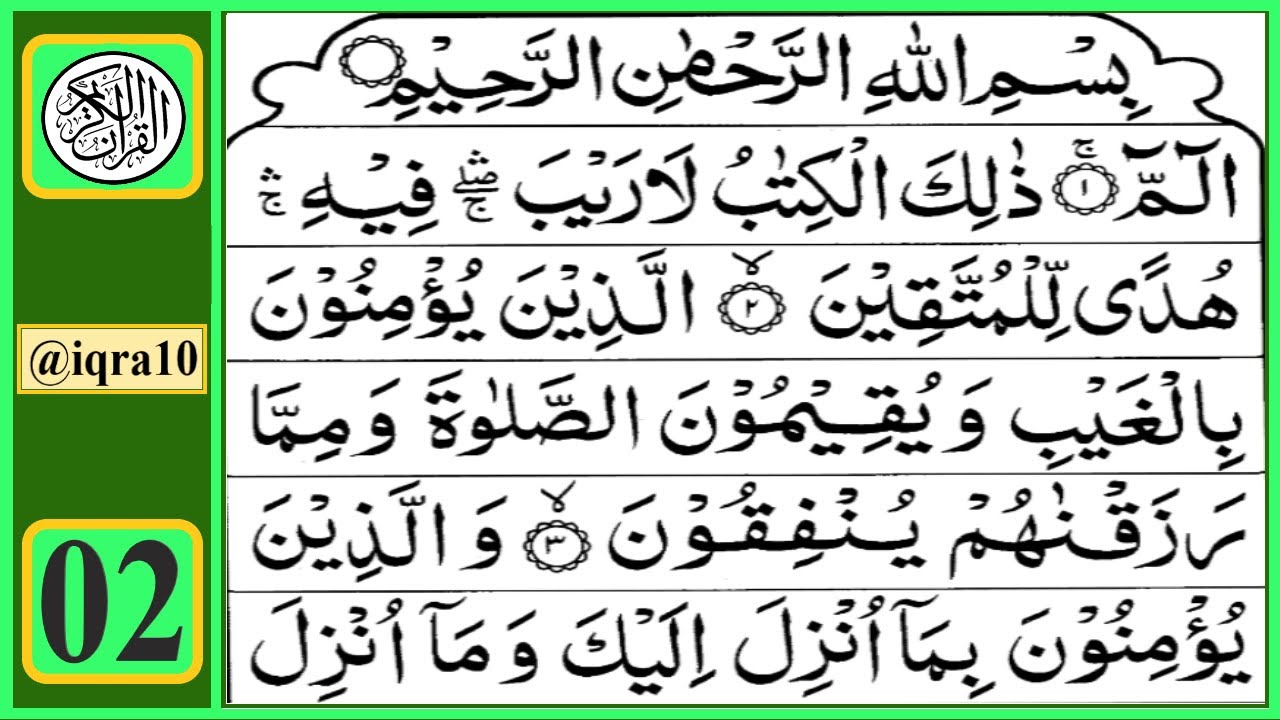 القرآن الكريم
@iqra10
02
بِسْمِ اللهِ الرَّحْمٰنِ الرَّحِيْمِ
الٓمّٓ ۚ﴿١﴾ ذٰلِكَ الْكِتٰبُ لَا رَيْبَ ۛۖۚ فِيْهِ ۛۚ
هُدًى لِّلْمُتَّقِيْنَ ۙ﴿٢﴾ الَّذِيْنَ يُؤْمِنُوْنَ
بِالْغَيْبِ وَ يُقِيْمُوْنَ الصَّلٰوةَ وَ مِمَّا
رَزَقْنٰهُمْ يُنْفِقُوْنَ ۙ﴿٣﴾ وَ الَّذِيْنَ
يُؤْمِنُوْنَ بِمَآ اُنْزِلَ اِلَيْكَ وَ مَآ اُنْزِلَ